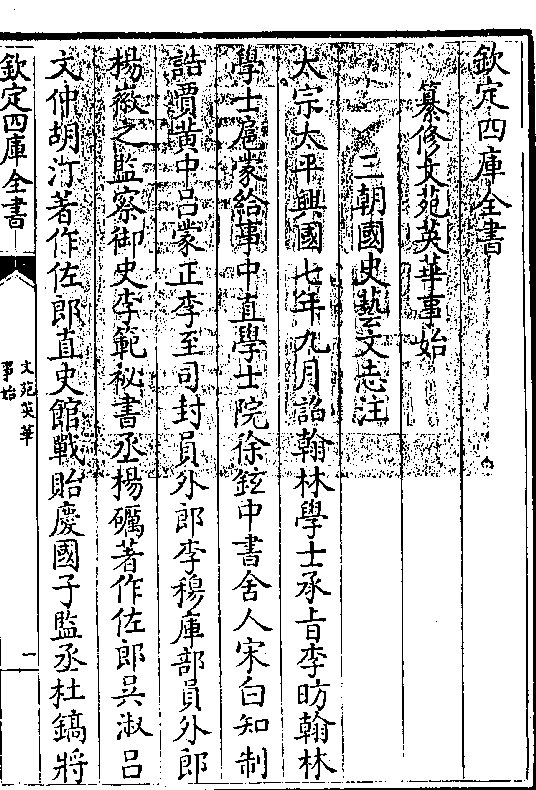 欽定四庫全書
纂修文苑英華事始
三朝國史藝文志注
太宗太平興國七年九月詔翰林學士承旨李昉翰林
學士扈蒙給事中直學士院徐鉉中書舍人宋白知制
誥賈黃中呂蒙正李至司封員外郎李穆庫部員外郎
楊徽之監察御史李範秘書丞楊礪著作佐郎吳淑呂
文仲胡汀著作佐郎直史館戰貽慶國子監丞杜鎬將
欽定四庫全書
文苑英華
事始
一